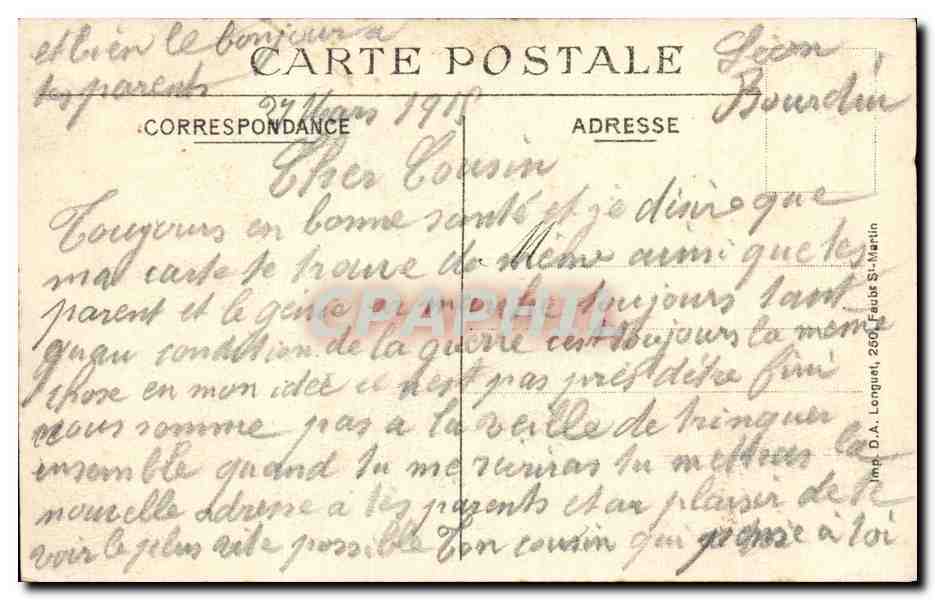 et bien le bonjour a
tes parents
CARTE POSTALE
Léon
Bourdin
27 Mars 1915
CORRESPONDANCE
ADRESSE
Cher Cousin
Toujours en bonne santé et je désire que
ma carte te trouve de même ainsi que tes
parent et le génie en toujours tant
quau condition de la guerre cest toujours la meme
chose en mon ideé ce nest pas près dêtre fini
nous somme pas a la veille de trinquer
ensemble quand tu me tu mettras la
nouvelle adresse a tes parents et au plaisir de te
voir le plus vite possible Ton cousin qui pense à toi
CPAPHIL
Imp. D.A. Longuet, 250, Faubg St-Martin